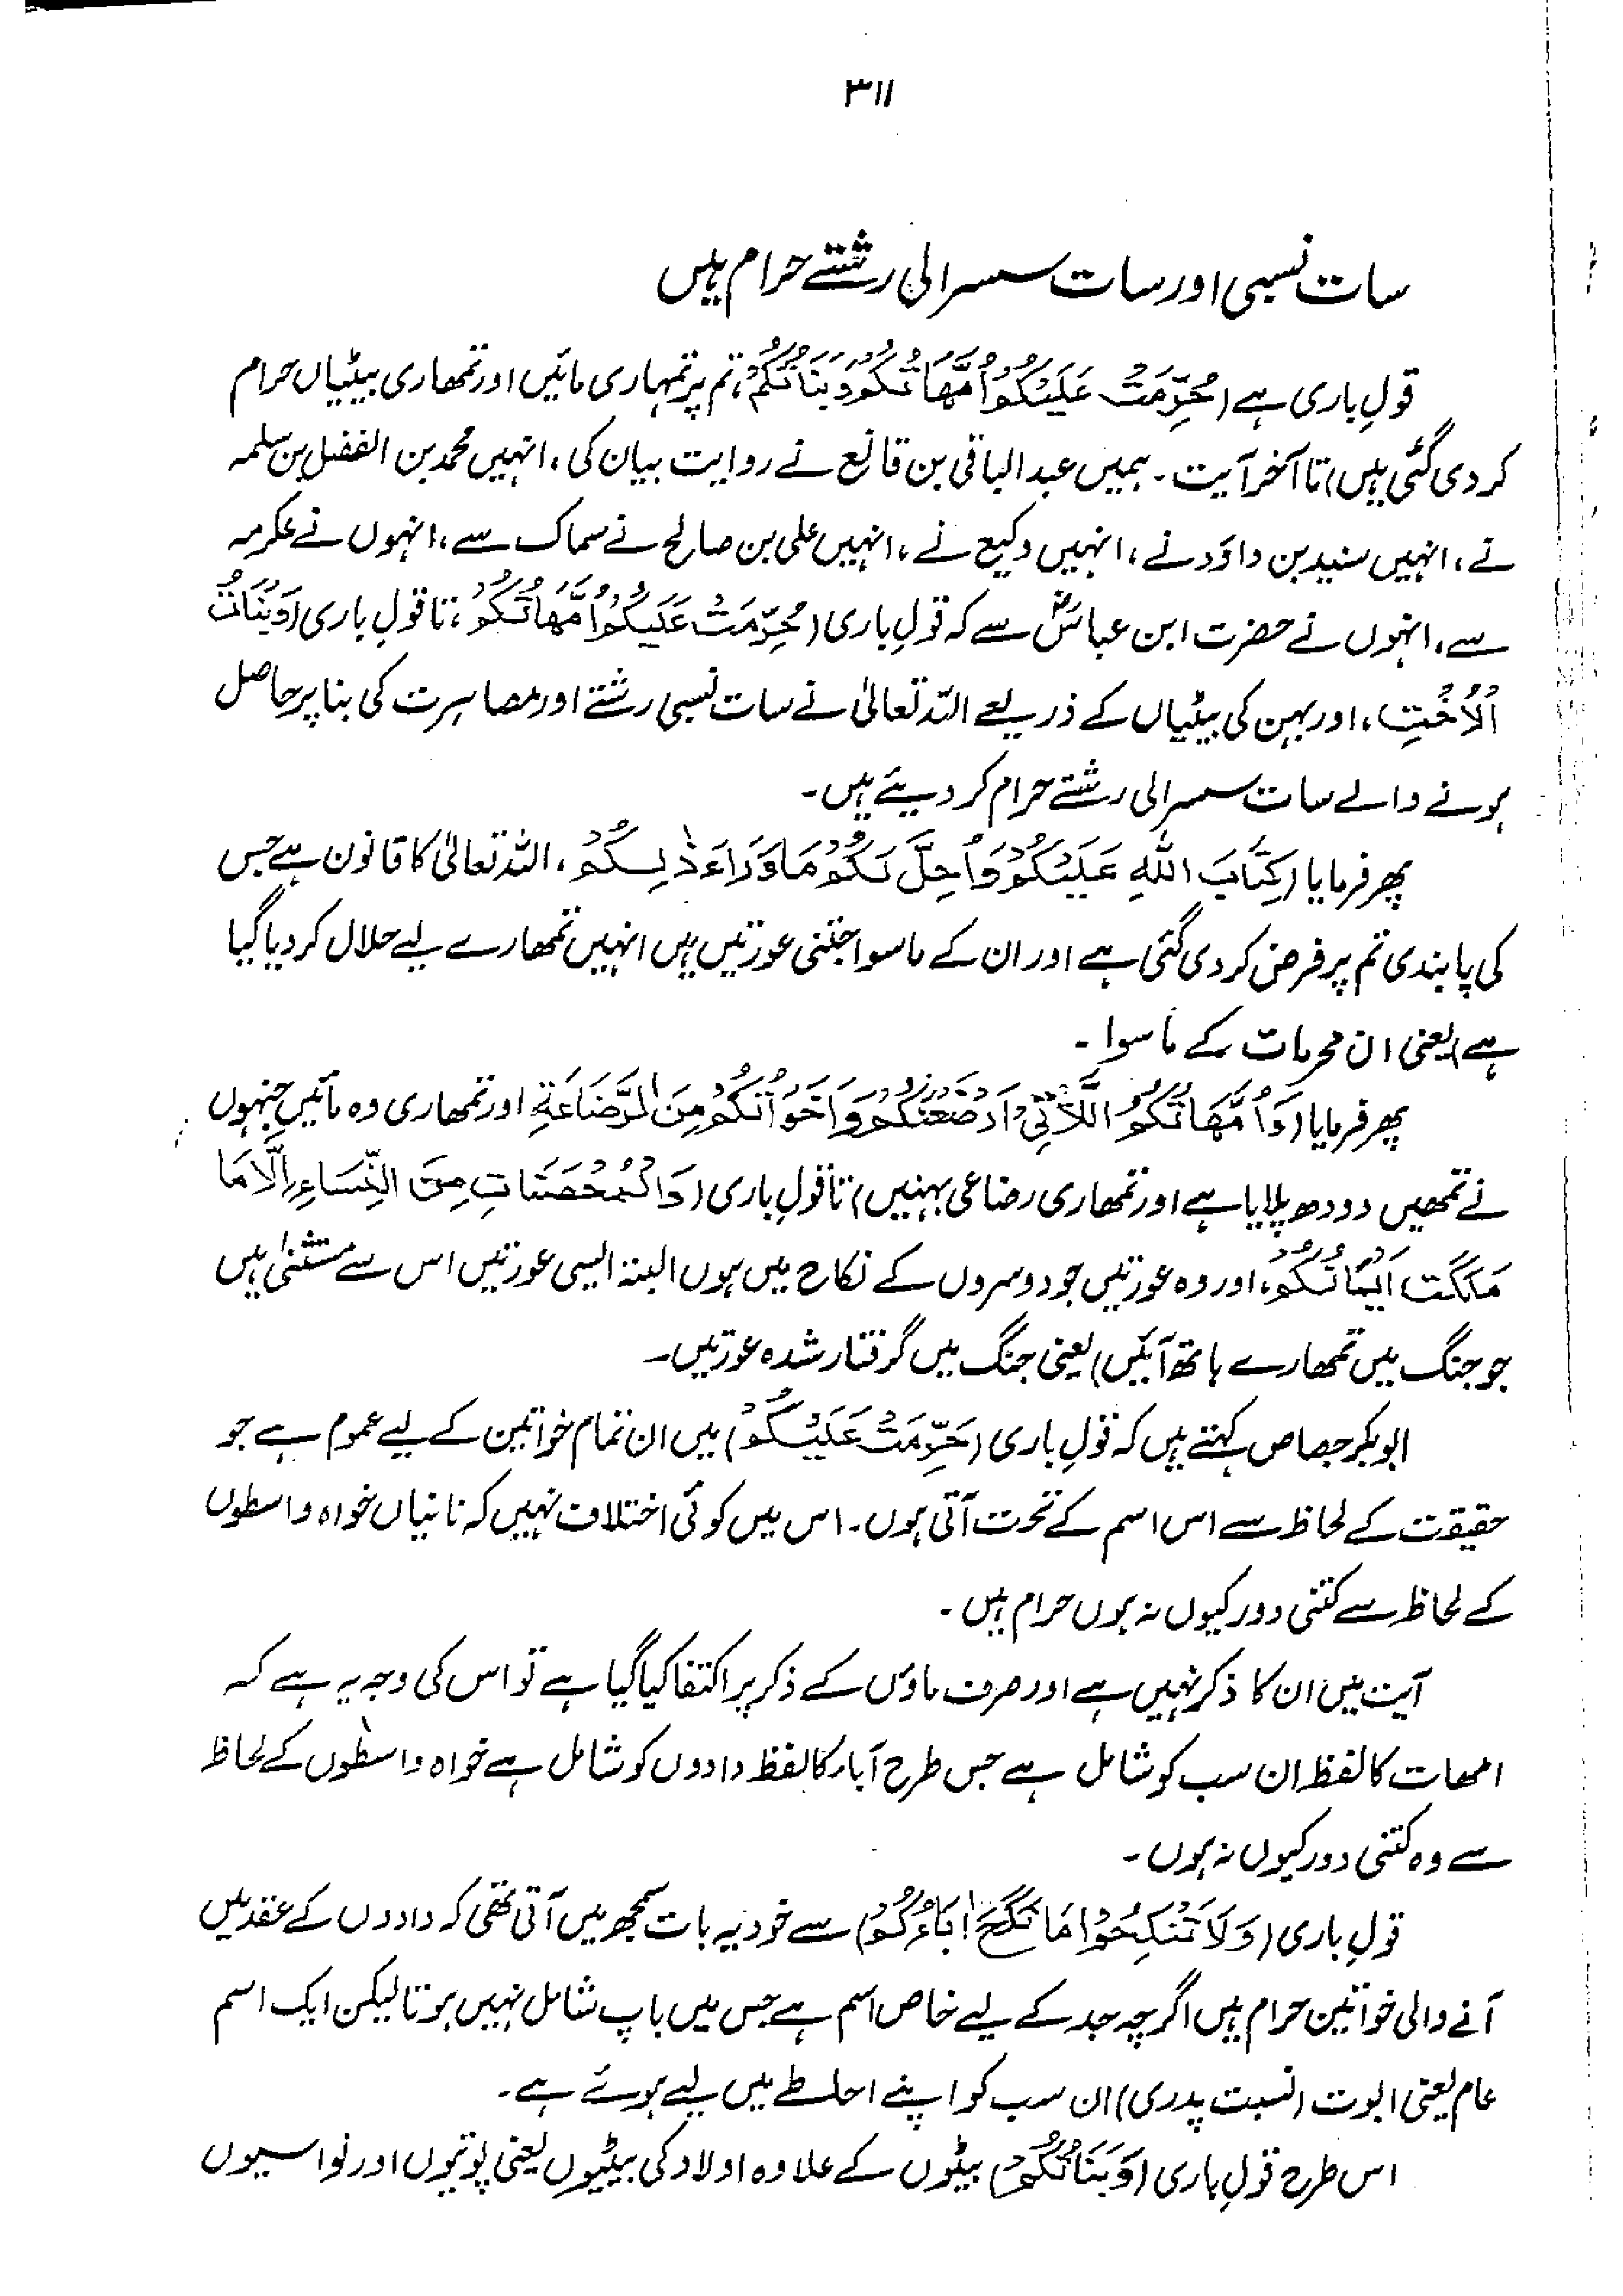 ۳۱۱
سات نسبی اور سات سسرالی رشتے حرام ہیں
قولِ باری ہے (حُرِّمَتْ عَلَيْكُمْ اُمَّهَاتُكُمْ وَبَنَاتُكُمْ، تم پر تمہاری مائیں اور تمھاری بیٹیاں حرام
کر دی گئی ہیں) تا آخر آیت۔ ہمیں عبد الباقی بن قانع نے روایت بیان کی، انہیں محمد بن الفضل بن سلمہ
نے، انہیں سنید بن داؤد نے، انہیں وکیع نے، انہیں علی بن صالح نے سماک سے، انہوں نے عکرمہ
سے، انہوں نے حضرت ابن عباسؓ سے کہ قولِ باری (حُرِّمَتْ عَلَيْكُمْ اُمَّهَاتُكُمْ، تا قولِ باری (وَبَنَاتُ
الْاُخْتِ، اور بہن کی بیٹیاں کے ذریعے اللہ تعالیٰ نے سات نسبی رشتے اور مصاہرت کی بنا پر حاصل
ہونے والے سات سسرالی رشتے حرام کر دیئے ہیں۔
پھر فرمایا (كِتَابَ اللهِ عَلَيْكُمْ وَاُحِلَّ لَكُمْ مَا وَرَاءَ ذٰلِكُمْ، اللہ تعالیٰ کا قانون ہے جس
کی پابندی تم پر فرض کر دی گئی ہے اور ان کے ماسوا جتنی عورتیں ہیں انہیں تمھارے لیے حلال کر دیا گیا
ہے) یعنی ان محرمات کے ماسوا۔
پھر فرمایا (وَاُمَّهَاتُكُمُ اللَّاتِيْ اَرْضَعْنَكُمْ وَاَخَوَاتُكُمْ مِنَ الرَّضَاعَةِ اور تمھاری وہ مائیں جنہوں
نے تمھیں دودھ پلایا ہے اور تمھاری رضاعی بہنیں) تا قولِ باری (وَالْمُحْصَنَاتِ مِنَ النِّسَاءِ اِلَّا مَا
مَلَكَتْ اَيْمَانُكُمْ، اور وہ عورتیں جو دوسروں کے نکاح میں ہوں البتہ ایسی عورتیں اس سے مستثنیٰ ہیں
جو جنگ میں تمھارے ہاتھ آئیں) یعنی جنگ میں گرفتار شدہ عورتیں۔
ابو بکر جصاص کہتے ہیں کہ قولِ باری (حُرِّمَتْ عَلَيْكُمْ) میں ان تمام خواتین کے لیے عموم ہے جو
حقیقت کے لحاظ سے اس اسم کے تحت آتی ہوں۔ اس میں کوئی اختلاف نہیں کہ نانیاں خواہ واسطوں
کے لحاظ سے کتنی دور کیوں نہ ہوں حرام ہیں۔
آیت میں ان کا ذکر نہیں ہے اور صرف ماؤں کے ذکر پر اکتفا کیا گیا ہے تو اس کی وجہ یہ ہے کہ
امھات کا لفظ ان سب کو شامل ہے جس طرح آباء کا لفظ دادوں کو شامل ہے خواہ واسطوں کے لحاظ
سے وہ کتنی دور کیوں نہ ہوں۔
قولِ باری (وَلَا تَنْكِحُوْا مَا نَكَحَ اٰبَاءُكُمْ) سے خود یہ بات سمجھ میں آتی تھی کہ دادوں کے عقد میں
آنے والی خواتین حرام ہیں اگرچہ جد کے لیے خاص اسم ہے جس میں باپ شامل نہیں ہوتا لیکن ایک اسم
عام یعنی ابوت (نسبت پدری) ان سب کو اپنے احاطے میں لیے ہوئے ہے۔
اس طرح قولِ باری (وَبَنَاتُكُمْ) بیٹوں کے علاوہ اولاد کی بیٹیوں یعنی پوتیوں اور نواسیوں